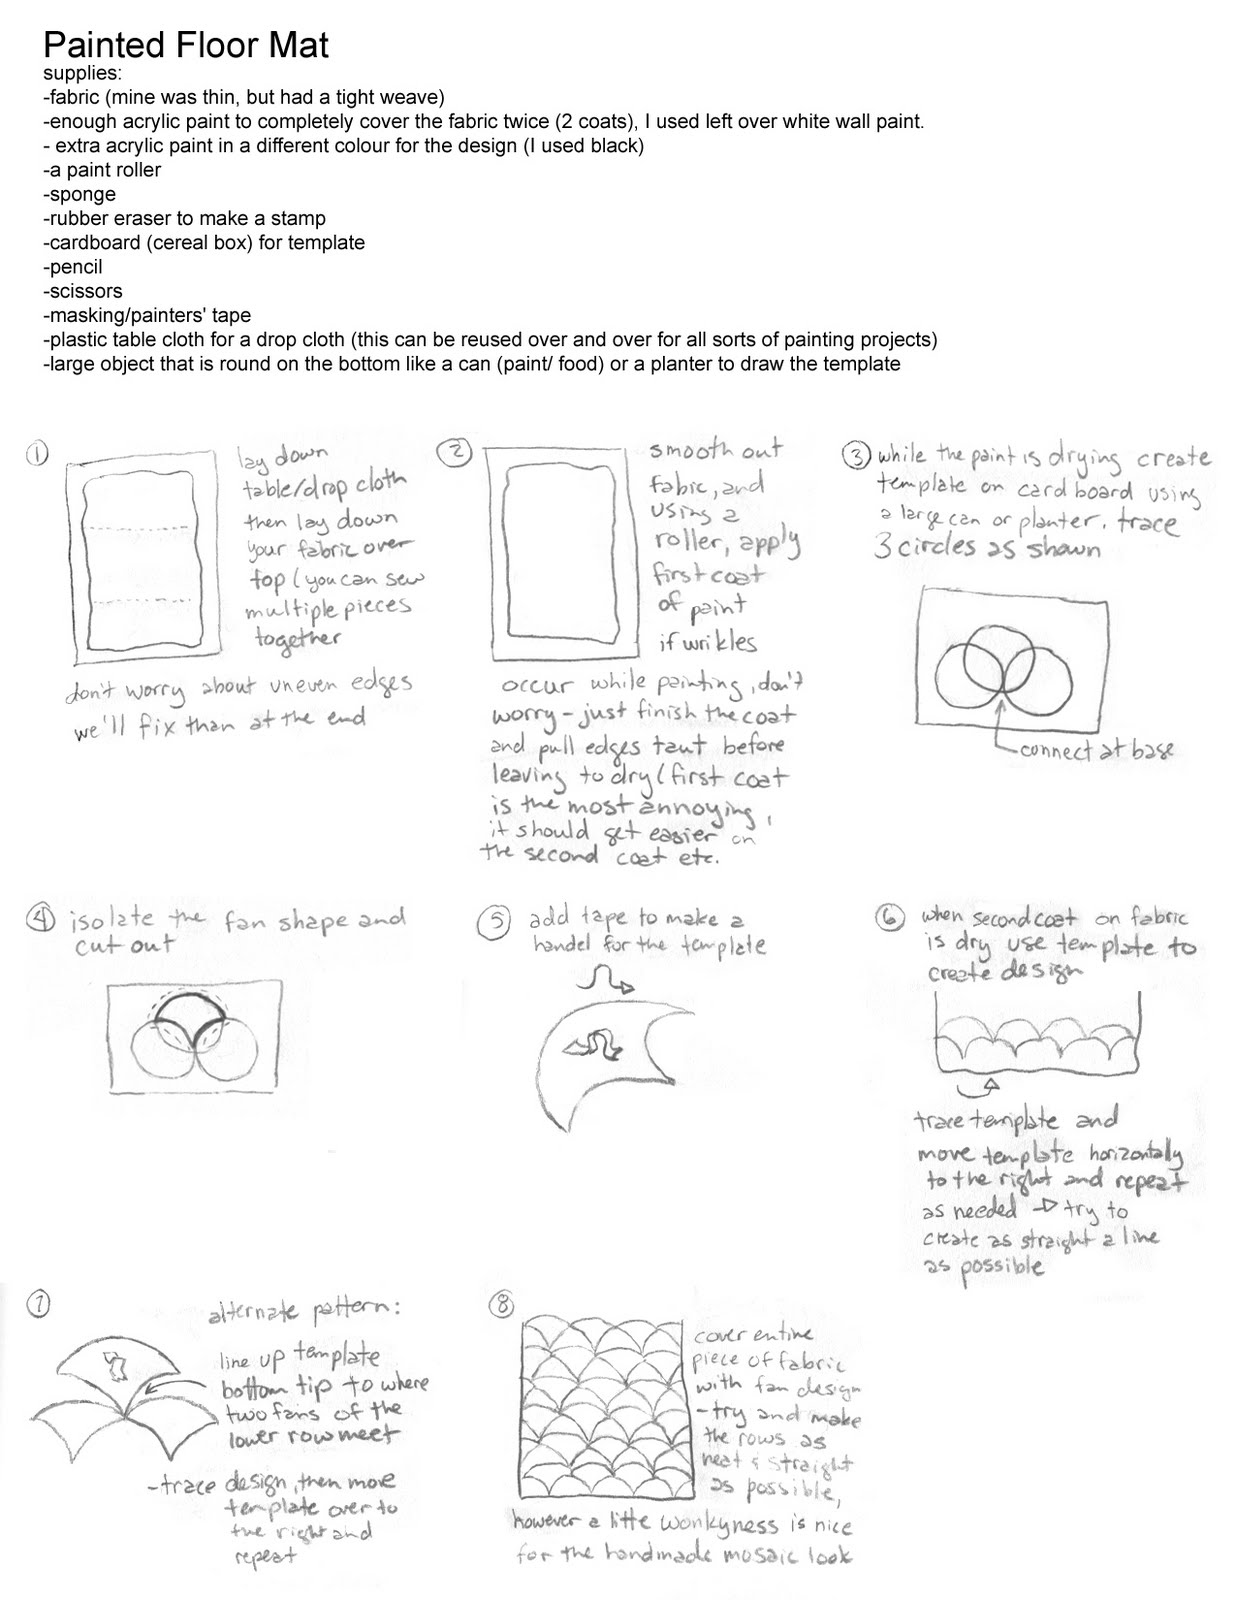 Painted Floor Mat
supplies:
-fabric (mine was thin, but had a tight weave)
-enough acrylic paint to completely cover the fabric twice (2 coats), I used left over white wall paint.
- extra acrylic paint in a different colour for the design (I used black)
-a paint roller
-sponge
-rubber eraser to make a stamp
-cardboard (cereal box) for template
-pencil
-scissors
-masking/painters' tape
-plastic table cloth for a drop cloth (this can be reused over and over for all sorts of painting projects)
-large object that is round on the bottom like a can (paint/ food) or a planter to draw the template
1
lay down
table/drop cloth
then lay down
your fabric over
top (you can sew
multiple pieces
together
don't worry about uneven edges
we'll fix than at the end
2
smooth out
fabic, and
using a
roller, apply
first coat
of paint
if wrikles
occur while painting, don't
worry - just finish the coat
and pull edges taut before
leaving to dry (first coat
is the most annoying,
it should get easier on
the second coat etc.
3 while the paint is drying create
template on cardboard using
a large can or planter. trace
3 circles as shown
connect at base
4 isolate the fan shape and
cut out
5 add tape to make a
handel for the template
6 when second coat on fabric
is dry use template to
create design
trace template and
move template horizontally
to the right and repeat
as needed → try to
create as straight a line
as possible
7
alternate pattern:
line up template
bottom tip to where
two fans of the
lower row meet
-trace design, then move
template over to
the right and
repeat
8
cover entire
piece of fabric
with fan design
- try and make
the rows as
neat & straight
as possible,
however a litte wonkyness is nice
for the handmade mosaic look